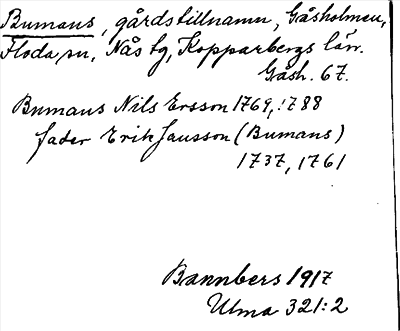 Bumans, gårdstillnamn, Gåsholmen,
Floda sn, Nås tg, Kopparbergs län.
Gåsh. 67.
Bumans Nils Ersson 1769, 1788
fader Erik Jansson (Bumans)
1737, 1761
Bannbers 1917
Ulma 321:2